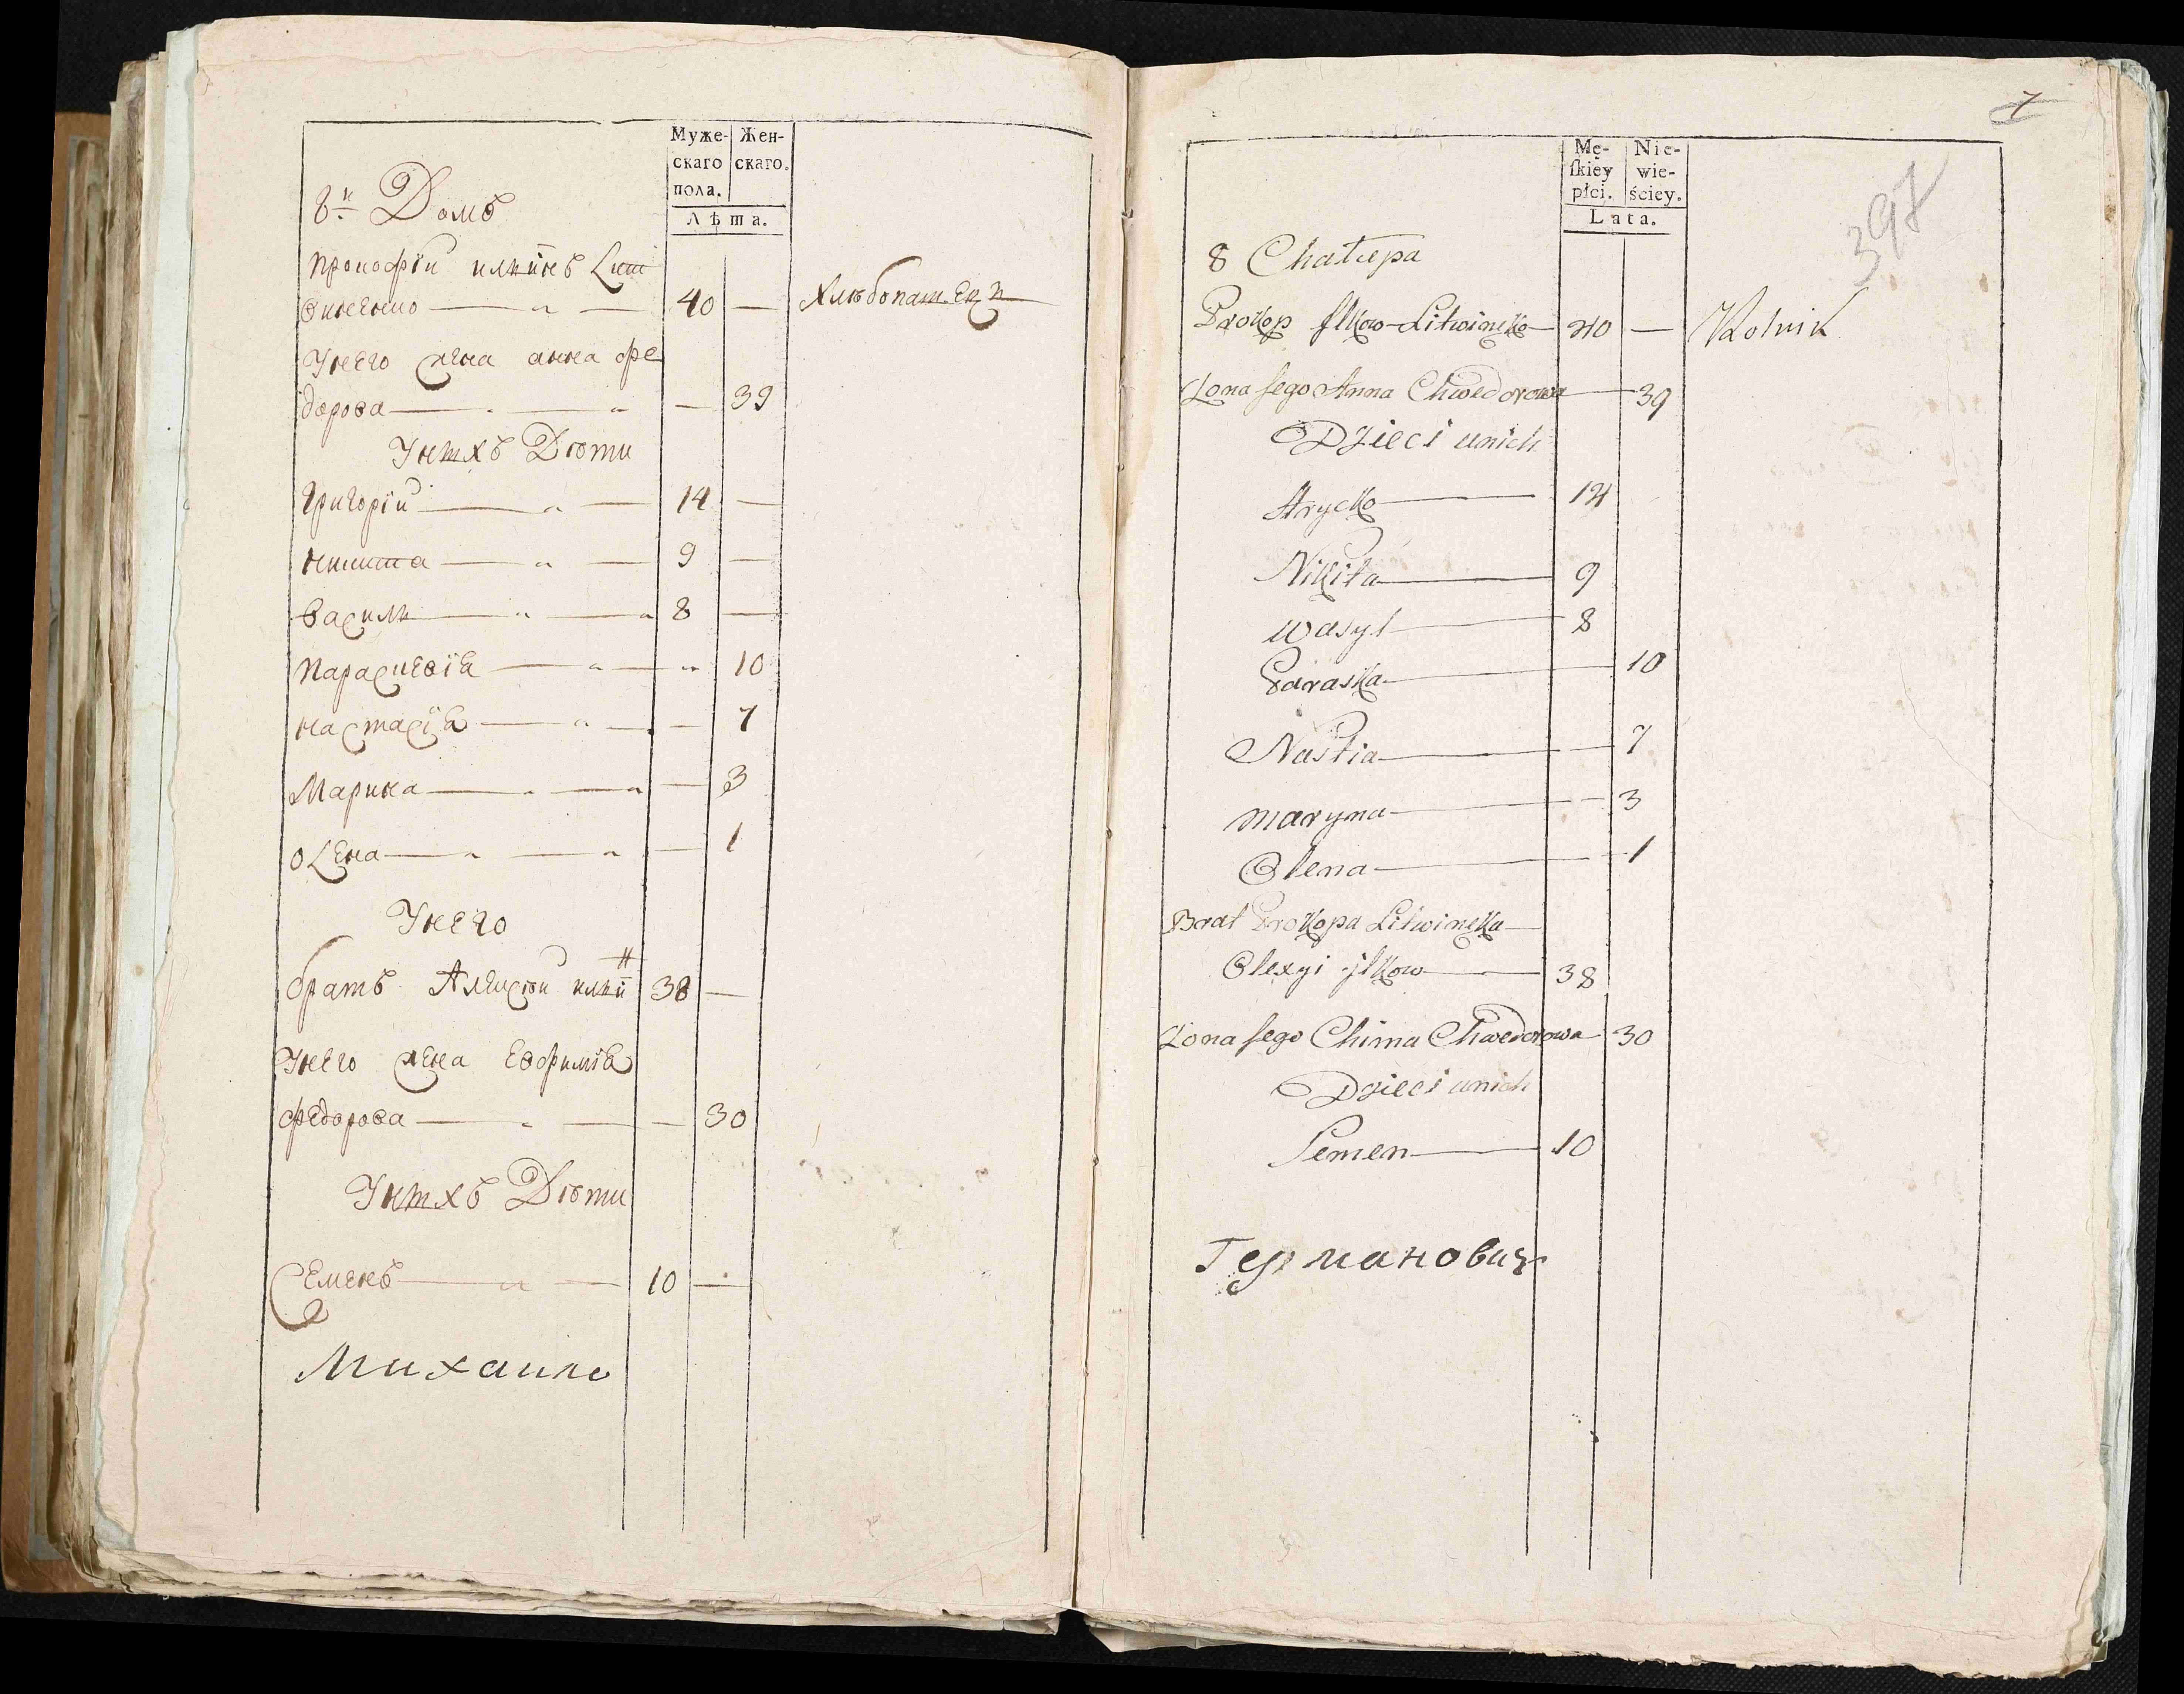 Муже-
скаго
пола.
Жен-
скаго.
Лѣта.
8й Домъ
Прокофїй илкинъ Лит
виненко — " — 40 — Хлѣбопашецъ
Унего жена анна фе
дорова — " — " — 39
Унихъ Дѣти
Григорїй — " — 14 —
никита — " — 9 —
василь — " — " 8 —
Параскевїа — " — " 10
настасїа — " — — 7
Марина — " — " — 3
оЛена — " — " — 1
Унего
братъ Алексѣй илкин 38 —
Унего жена Евфимїа
федорова — " — — 30
Унихъ Дѣти
Семенъ — " — 10 —
Михаило
7
397
Mę-
ſkiey
płci.
Nie-
wie-
ściey.
Lata.
8 Chałupa
Prokop Jlkow Litwinęko 40 — Rolnik
Zona Jego Anna Chwedorowa — 39
Dzieci unich
Hrycko — 14
Nikita — 9
Wasyl — 8
Paraska — 10
Nastia — 7
Maryna — 3
Olena — 1
Brat Prokopa Litwinęka —
Olexyi Jlkow — 38
Zona Jego Chima Chwedorowa 30
Dzieci unich
Semen — 10
Германович